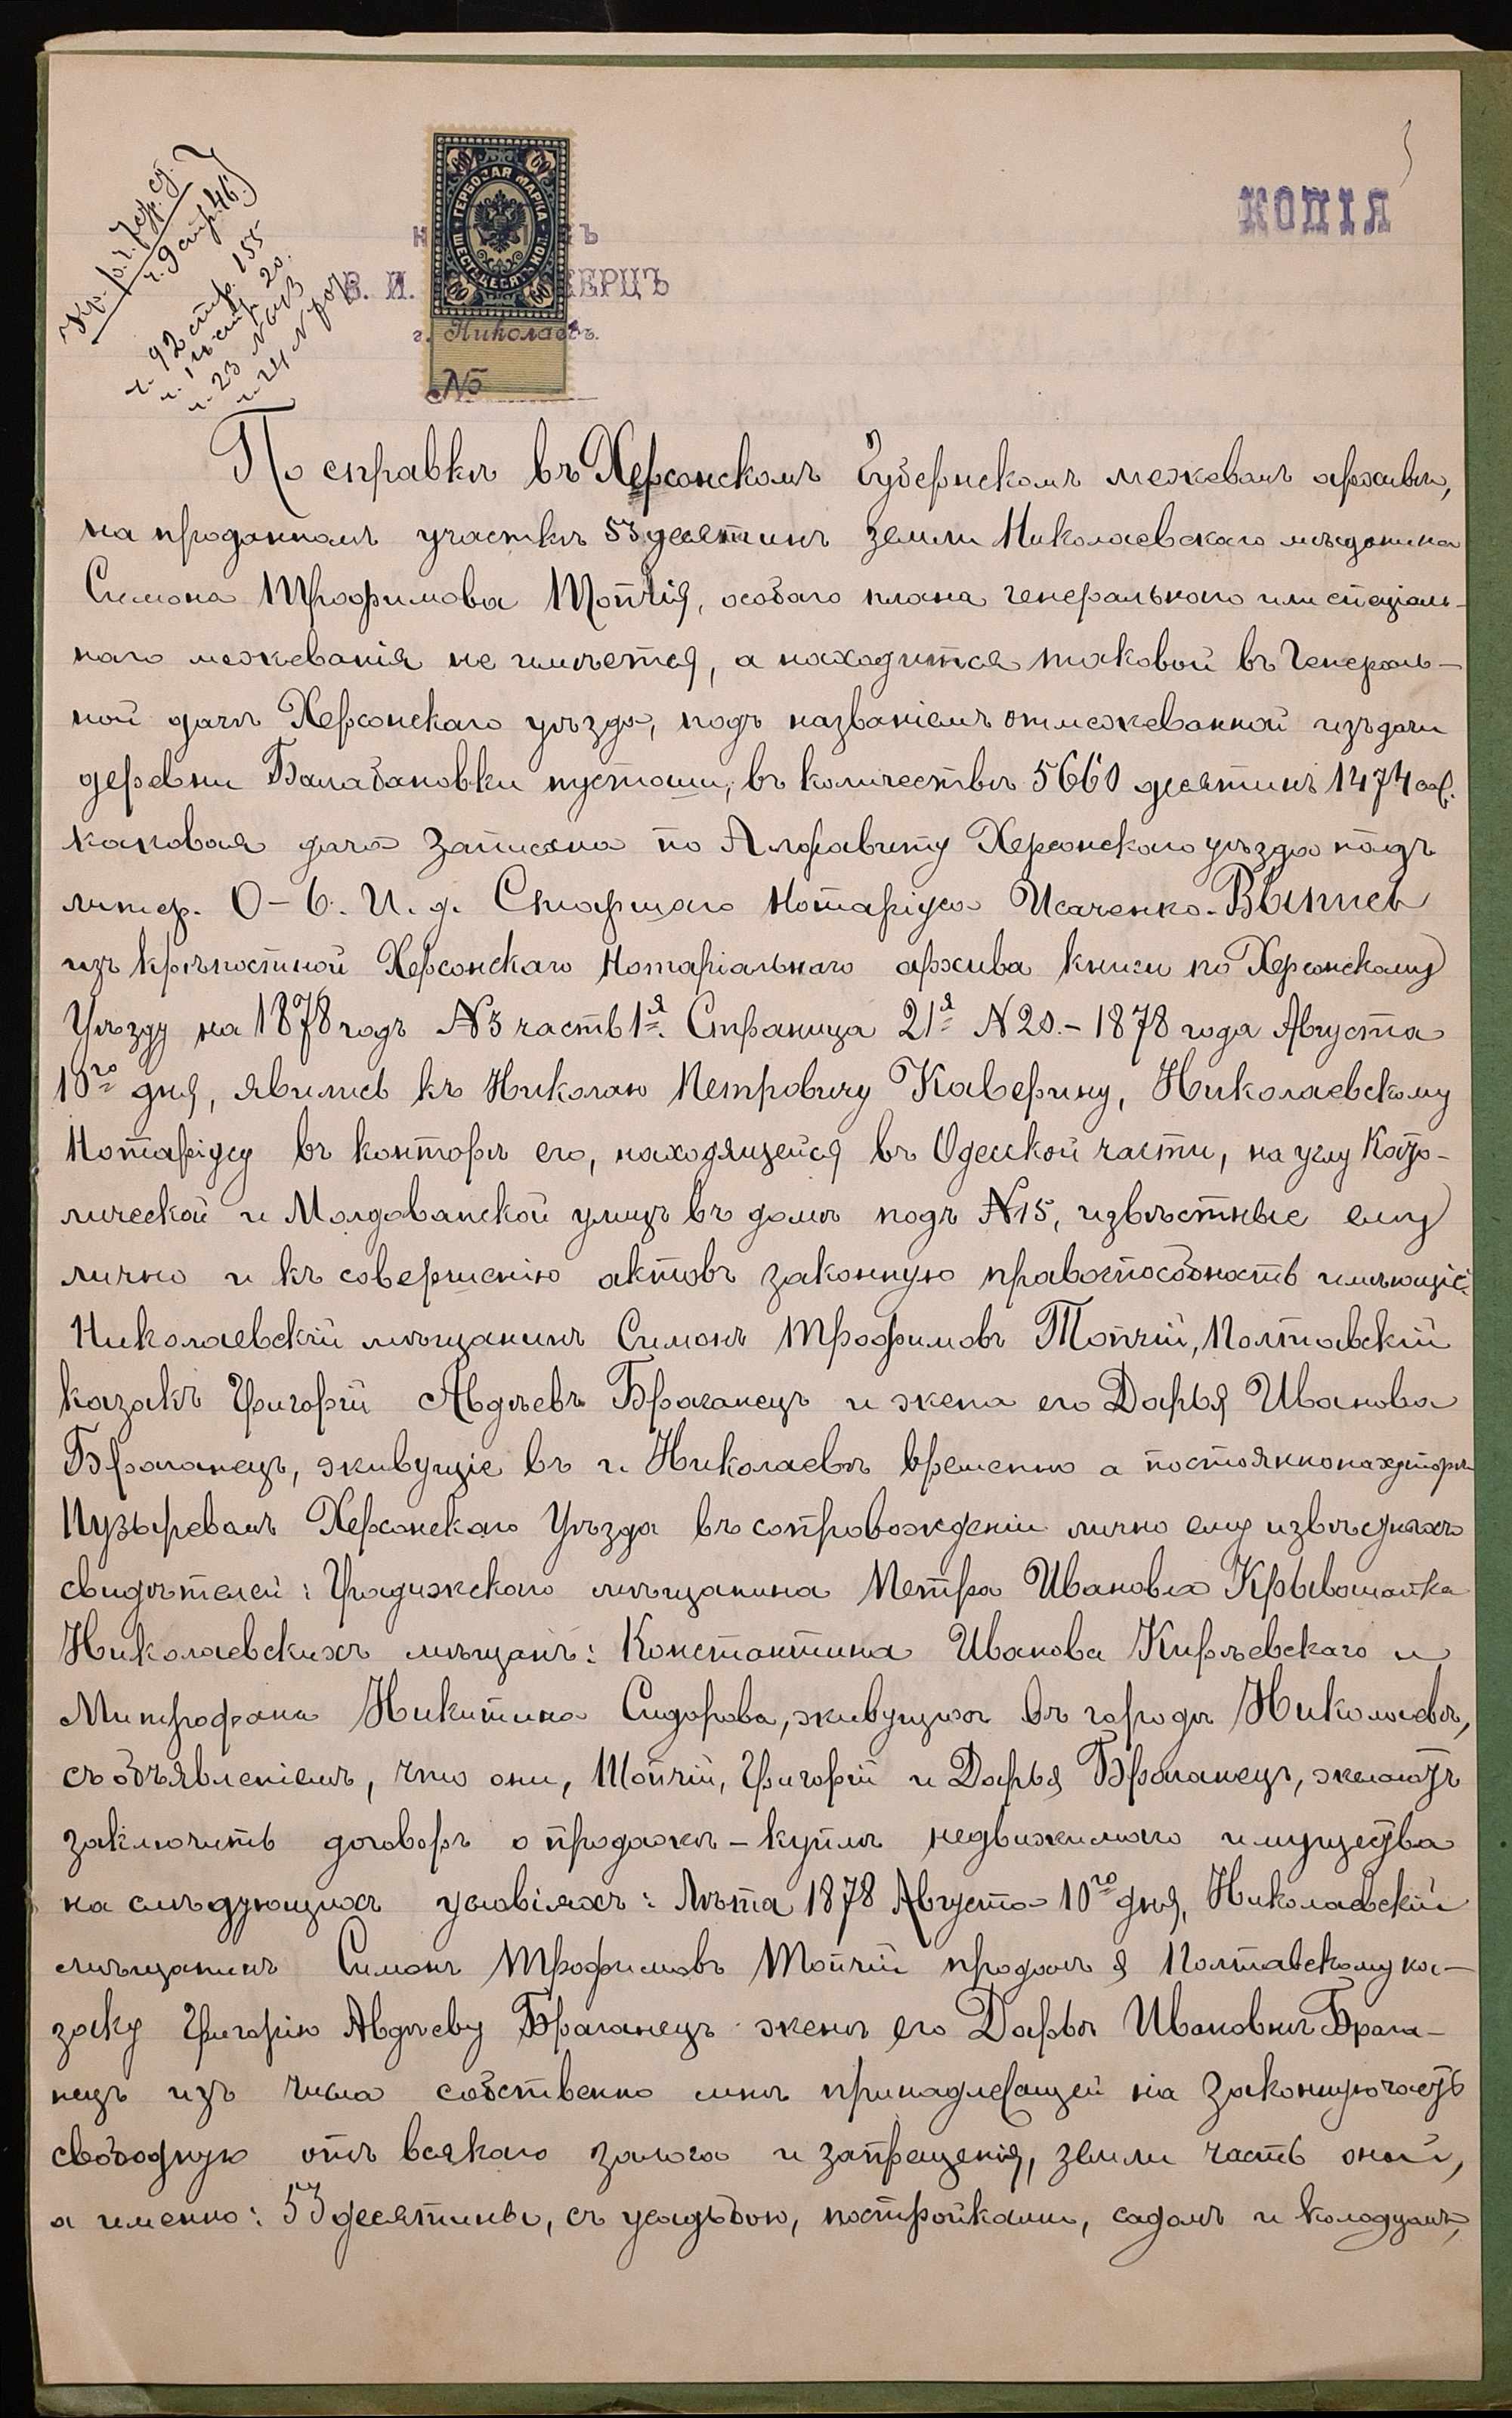 КОПIЯ
ГЕРБОВАЯ МАРКА
ШЕСТЬДЕСЯТЪ КОП.
60 60
60 60
В. И. ЕРЦЪ
г. Николаевъ.
№
ч. 9 стр. 46
92 стр. 155
стр. 20.
23 №
24 №
По справкѣ въ Херсонскомъ Губернскомъ межеваомъ архивѣ,
на проданномъ участкѣ 53 десятинъ земли Николаевскаго мѣщанина
Симона Трофимова Топчiя, особаго плана генеральнаго или спецiаль-
наго межеванiя не имѣется, а находится таковой въ Генераль-
ной дачѣ Херсонскаго уѣзда, подъ названiемъ отмежеванной изъ дачи
деревни Балабановки пустоши, въ количествѣ 5660 десятинъ 1474 саж.
каковая дача записана по Алфавиту Херсонскаго уѣзда подъ
литер. О-6. И. д. Старшаго Нотарiуса Исаченко. Выпись
изъ крѣпостной Херсонскаго Нотарiальнаго архива книги по Херсонскому
Уѣзду на 1878 годъ №3 часть 1я. Страница 21я №20.- 1878 года Августа
10го дня, явились къ Николаю Петровичу Каверину, Николаевскому
Нотарiусу въ конторѣ его, находящейся въ Одесской части, на углу Като-
лической и Молдованской улицъ въ домѣ подъ №15, извѣстные ему
лично и къ совершенiю актовъ законную правоспособность имѣющiе:
Николаевскiй мѣщанинъ Симонъ Трофимовъ Топчiй, Полтавскiй
казакъ Григорiй Авдѣевъ Браганецъ и жена его Дарья Иванова
Браганецъ, живущiе въ г. Николаевѣ временно а постоянно на хуторѣ
Пузыревомъ Херсонскаго Уѣзда въ сопровожденiи лично ему извѣстныхъ
свидѣтелей: Градижскаго мѣщанина Петра Иванова Крывошапка
Николаевскихъ мѣщанъ: Константина Иванова Кирѣевскаго и
Митрофана Никитина Сидорова, живущихъ въ городѣ Николаевѣ,
съ объявленiемъ, что они, Топчiй, Григорiй и Дарья Браганецъ, желаютъ
заключить договоръ о продажѣ-куплѣ недвижимаго имущества
на слѣдующихъ условiяхъ: Лѣта 1878 Августа 10го дня, Николаевскiй
мѣщанинъ Симонъ Трофимовъ Топчiй продалъ я Полтавскому ка-
заку Григорiю Авдѣеву Браганецъ женѣ его Дарьѣ Ивановнѣ Брага-
нецъ изъ числа собственно мнѣ принадлежащей на законную часть
свободную отъ всякаго залога и запрещенiя, земли часть оной,
а именно: 53 десятины, съ усадьбою, постройками, садомъ и колодцомъ,